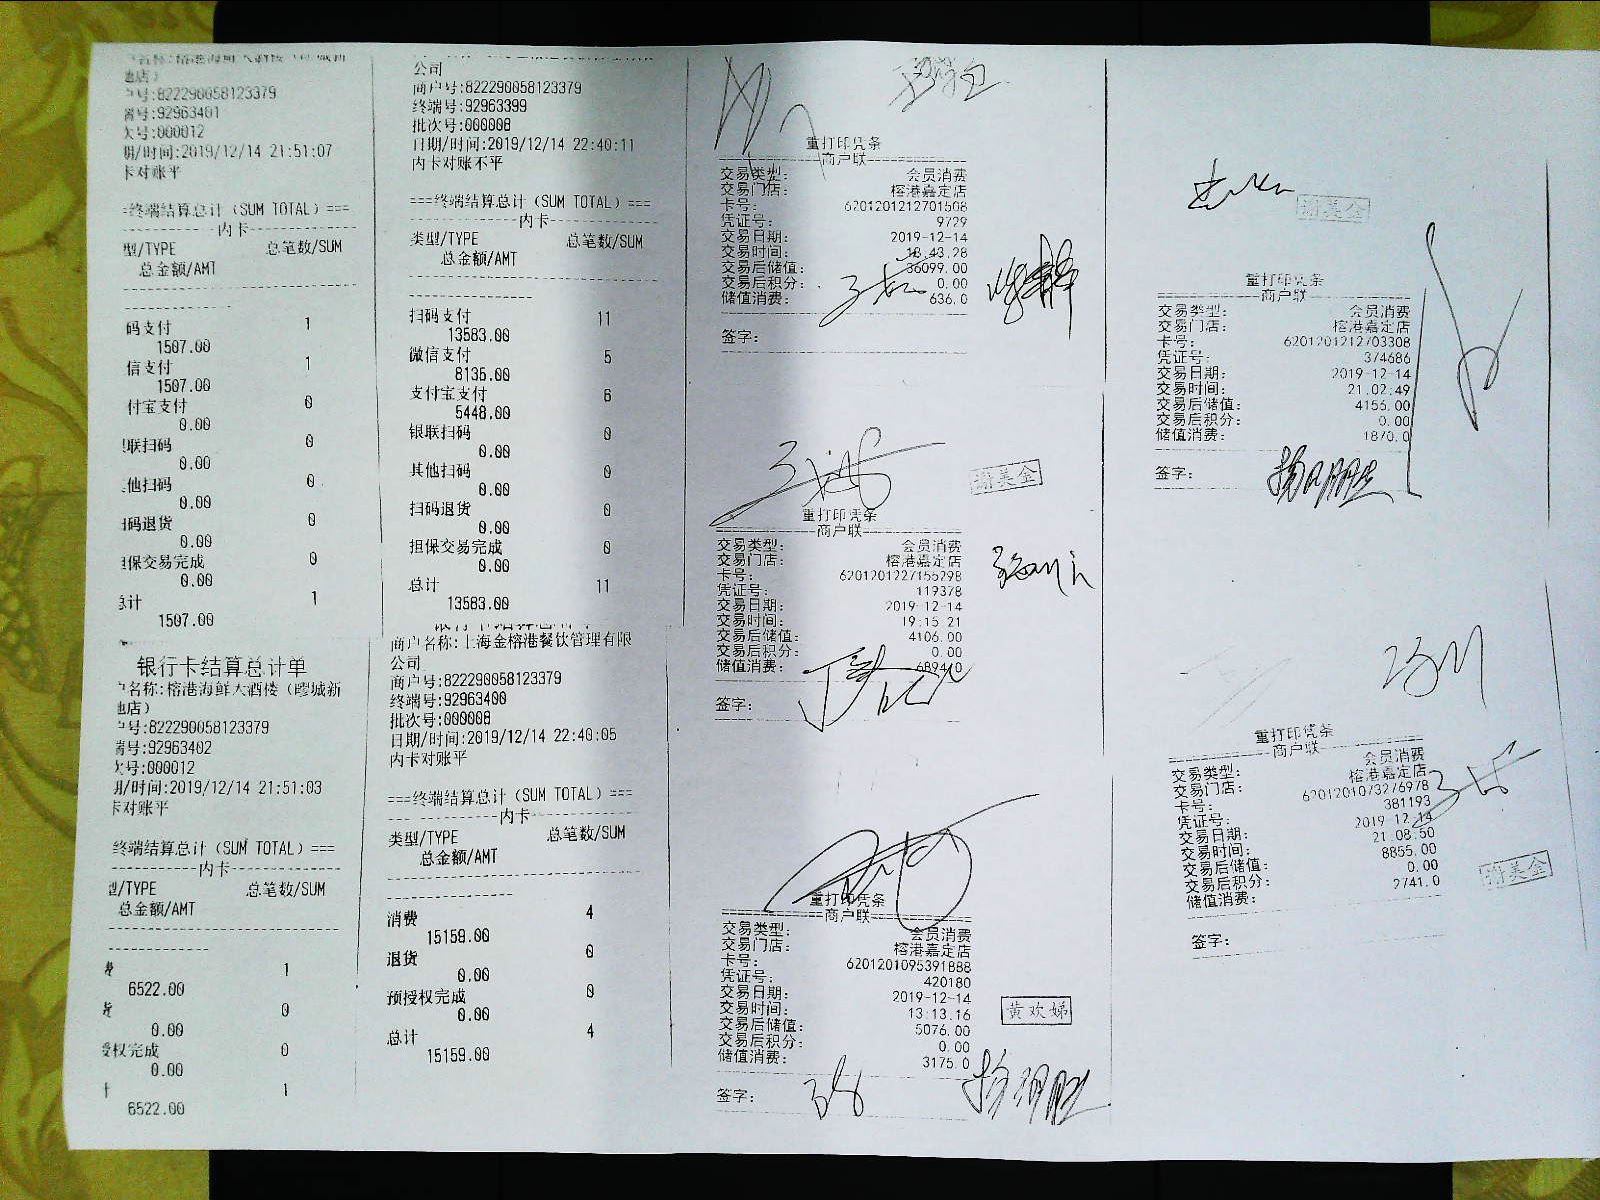 地店）
户号:822290058123379
端号:92963401
次号:000012
期/时间:2019/12/14 21:51:07
卡对账平
=终端结算总计（SUM TOTAL）===
内卡
型/TYPE 总笔数/SUM
总金额/AMT
码支付 1
1507.00
信支付 1
1507.00
付宝支付 0
0.00
联扫码 0
0.00
他扫码 0
0.00
码退货 0
0.00
保交易完成 0
0.00
总计 1
1507.00
银行卡结算总计单
户名称:榕港海鲜大酒楼（疁城新
地店）
户号:822290058123379
端号:92963402
次号:000012
期/时间:2019/12/14 21:51:03
卡对账平
终端结算总计（SUM TOTAL）===
内卡
型/TYPE 总笔数/SUM
总金额/AMT
费 1
6522.00
货 0
0.00
授权完成 0
0.00
计 1
6522.00
公司
商户号:822290058123379
终端号:92963399
批次号:000008
日期/时间:2019/12/14 22:40:11
内卡对账不平
===终端结算总计（SUM TOTAL）===
内卡
类型/TYPE 总笔数/SUM
总金额/AMT
扫码支付 11
13583.00
微信支付 5
8135.00
支付宝支付 6
5448.00
银联扫码 0
0.00
其他扫码 0
0.00
扫码退货 0
0.00
担保交易完成 0
0.00
总计 11
13583.00
商户名称:上海金榕港餐饮管理有限
公司
商户号:822290058123379
终端号:92963400
批次号:000008
日期/时间:2019/12/14 22:40:05
内卡对账平
===终端结算总计（SUM TOTAL）===
内卡
类型/TYPE 总笔数/SUM
总金额/AMT
消费 4
15159.00
退货 0
0.00
预授权完成 0
0.00
总计 4
15159.00
重打印凭条
商户联
交易类型: 会员消费
交易门店: 榕港嘉定店
卡号: 6201201212701508
凭证号: 9729
交易日期: 2019-12-14
交易时间: 18:43:28
交易后储值: 36099.00
交易后积分: 0.00
储值消费: 636.0
签字:
谢美金
重打印凭条
商户联
交易类型: 会员消费
交易门店: 榕港嘉定店
卡号: 6201201227155298
凭证号: 119378
交易日期: 2019-12-14
交易时间: 19:15:21
交易后储值: 4106.00
交易后积分: 0.00
储值消费: 6894.0
签字:
重打印凭条
商户联
交易类型: 会员消费
交易门店: 榕港嘉定店
卡号: 6201201095391888
凭证号: 420180
交易日期: 2019-12-14
交易时间: 13:13:16
交易后储值: 5076.00
交易后积分: 0.00
储值消费: 3175.0
黄欢娣
签字:
谢美金
重打印凭条
商户联
交易类型: 会员消费
交易门店: 榕港嘉定店
卡号: 6201201212703308
凭证号: 374686
交易日期: 2019-12-14
交易时间: 21:02:49
交易后储值: 4156.00
交易后积分: 0.00
储值消费: 1870.0
签字:
重打印凭条
商户联
交易类型: 会员消费
交易门店: 榕港嘉定店
卡号: 6201201073276978
凭证号: 381193
交易日期: 2019-12-14
交易时间: 21:08:50
交易后储值: 8855.00
交易后积分: 0.00
储值消费: 2741.0
谢美金
签字: